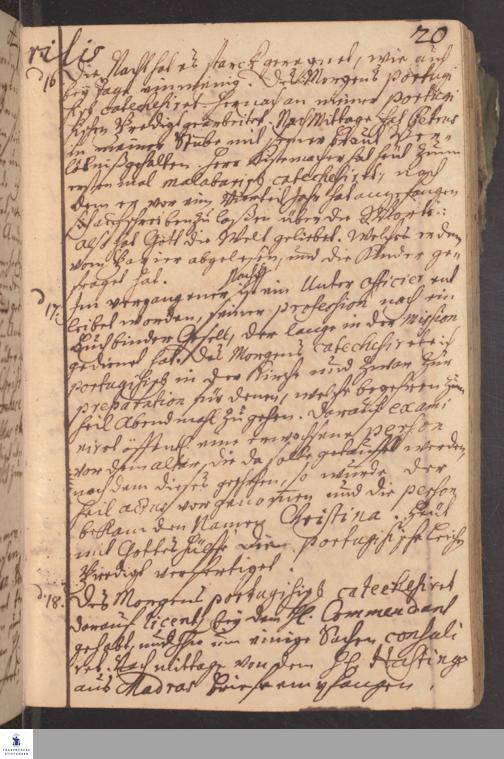 20
rilis
d 16. Die Nacht hat es starck geregnet, wie auch
bey Tage ein wenig. Des Morgens portugi
sisch catechesiret hernach an meiner portugi
sischen Predigt gearbeitet. Nach Mittage hat Petrus
in meiner Stube mit seiner Braut Ver-
löbniß gehalten. Herr Kistemacher hat heut zum
ersten mal malabarisch catechesirt, nach
dem er vor ein Viertel Jahr hat angefangen
zu laßen über die Worte:
Also hat Gott die Welt geliebet. Welches er dem
vom Papier abgelesen, und die Kinder ge-
fraget hat.
d 17. Im vergangener Nacht ist ein Unter officier ent
leibet worden, seiner profession nach ein
Buchbinder Gesell, der lange in der Mission
gedienet hat. Des Morgens catechesirete ich
portugisisch in der Kirche und zwar zur
præparation für denen, welche begehren zum
heil Abendmahl zu gehen. Darauf exami
niret öffentl. eine erwachsene person
vor dem altar, die da solte getauft werden,
nach dem dieses geschehen, so wurde der
heil actus vorgenomen und die person
bekam den Namen Christina. Heut
mit Gottes Hülffe die portugisische Leich
Predigt verfertiget.
d. 18. Des Morgens portugisisch catechesiret
darauf licent bey dem H. Commendant
gehabt, und ihn um einige Sachen consuli
ret. Nach Mittage von dem H. Hastings
aus Madras Briefe empfangen.
FRANCKESCHE
STIFTUNGEN